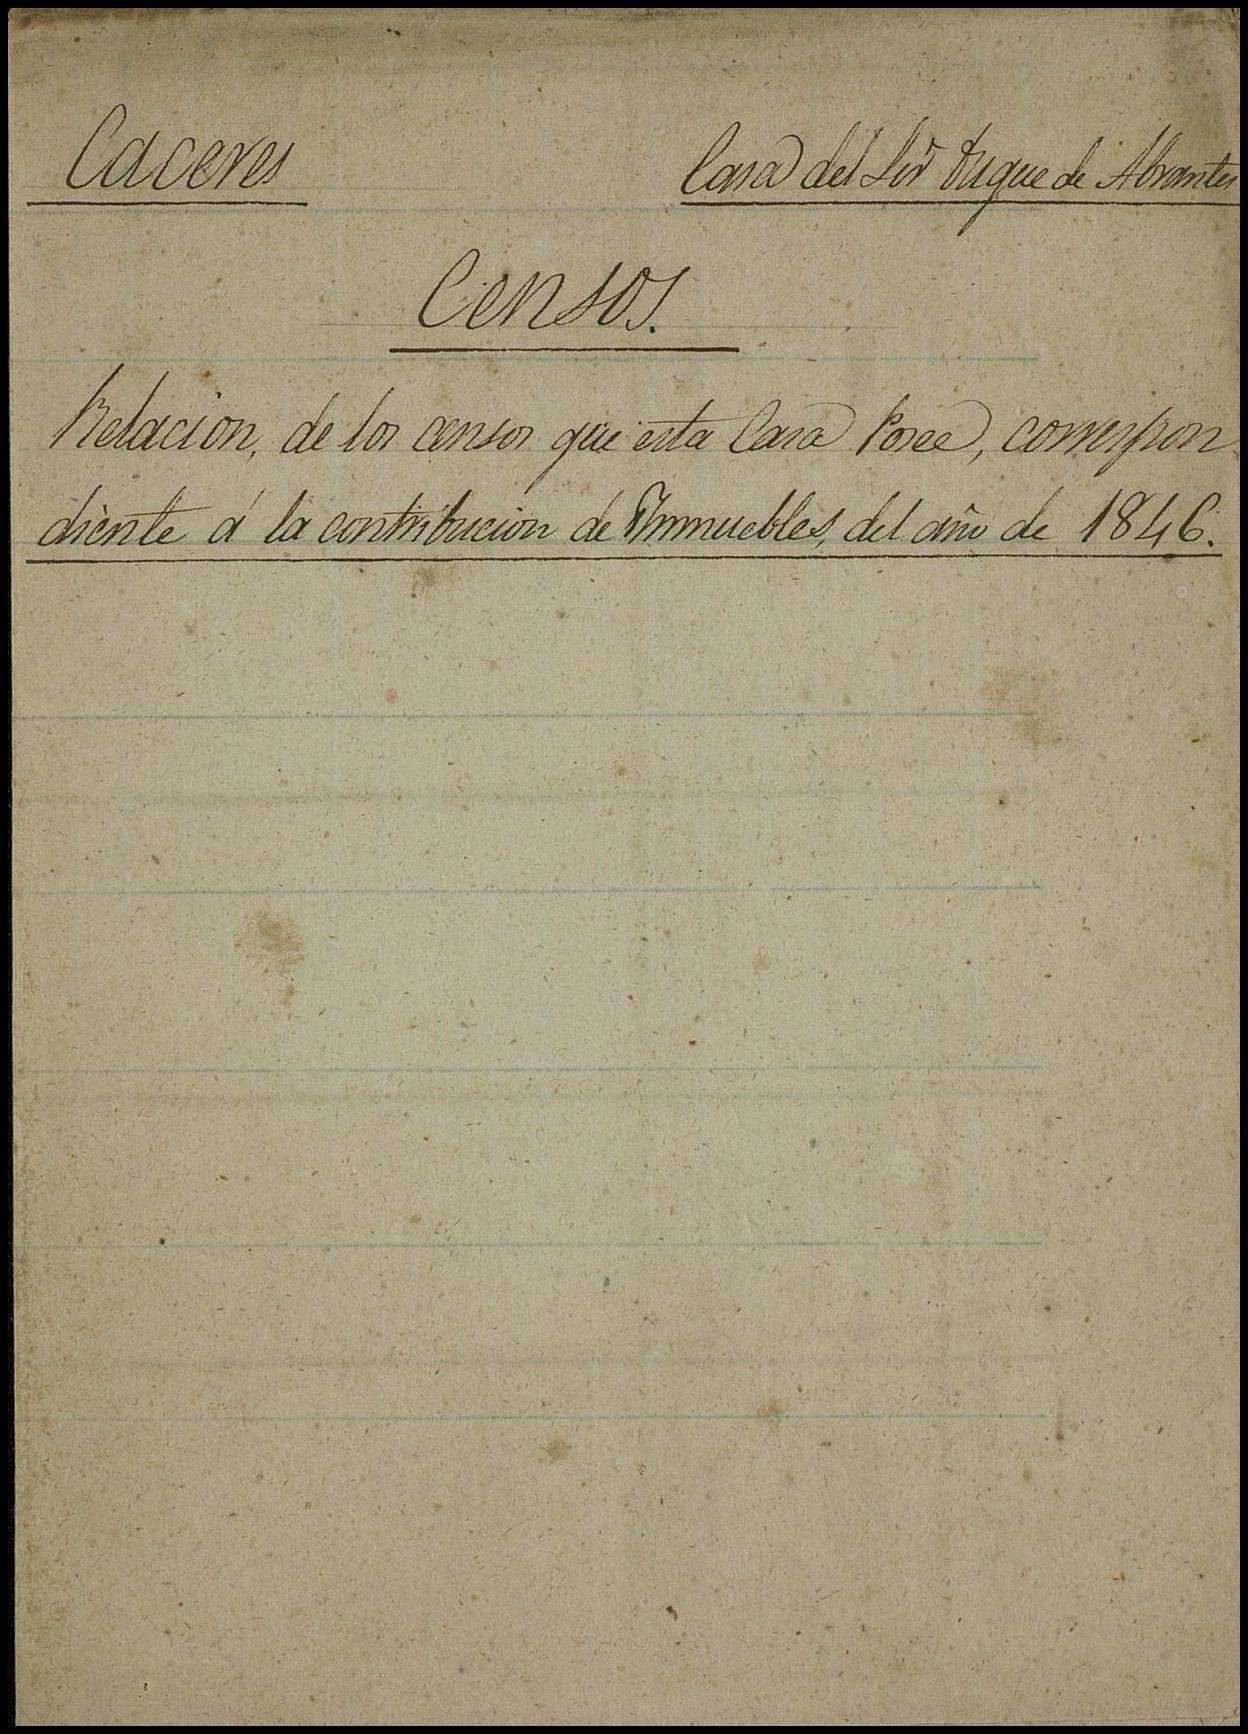 Caceres
Casa del Sor Duque de Abrantes
Censos.
Relacion, de los censos que esta Casa Posee, correspon
diente á la contribucion de Ynmuebles, del año de 1846.